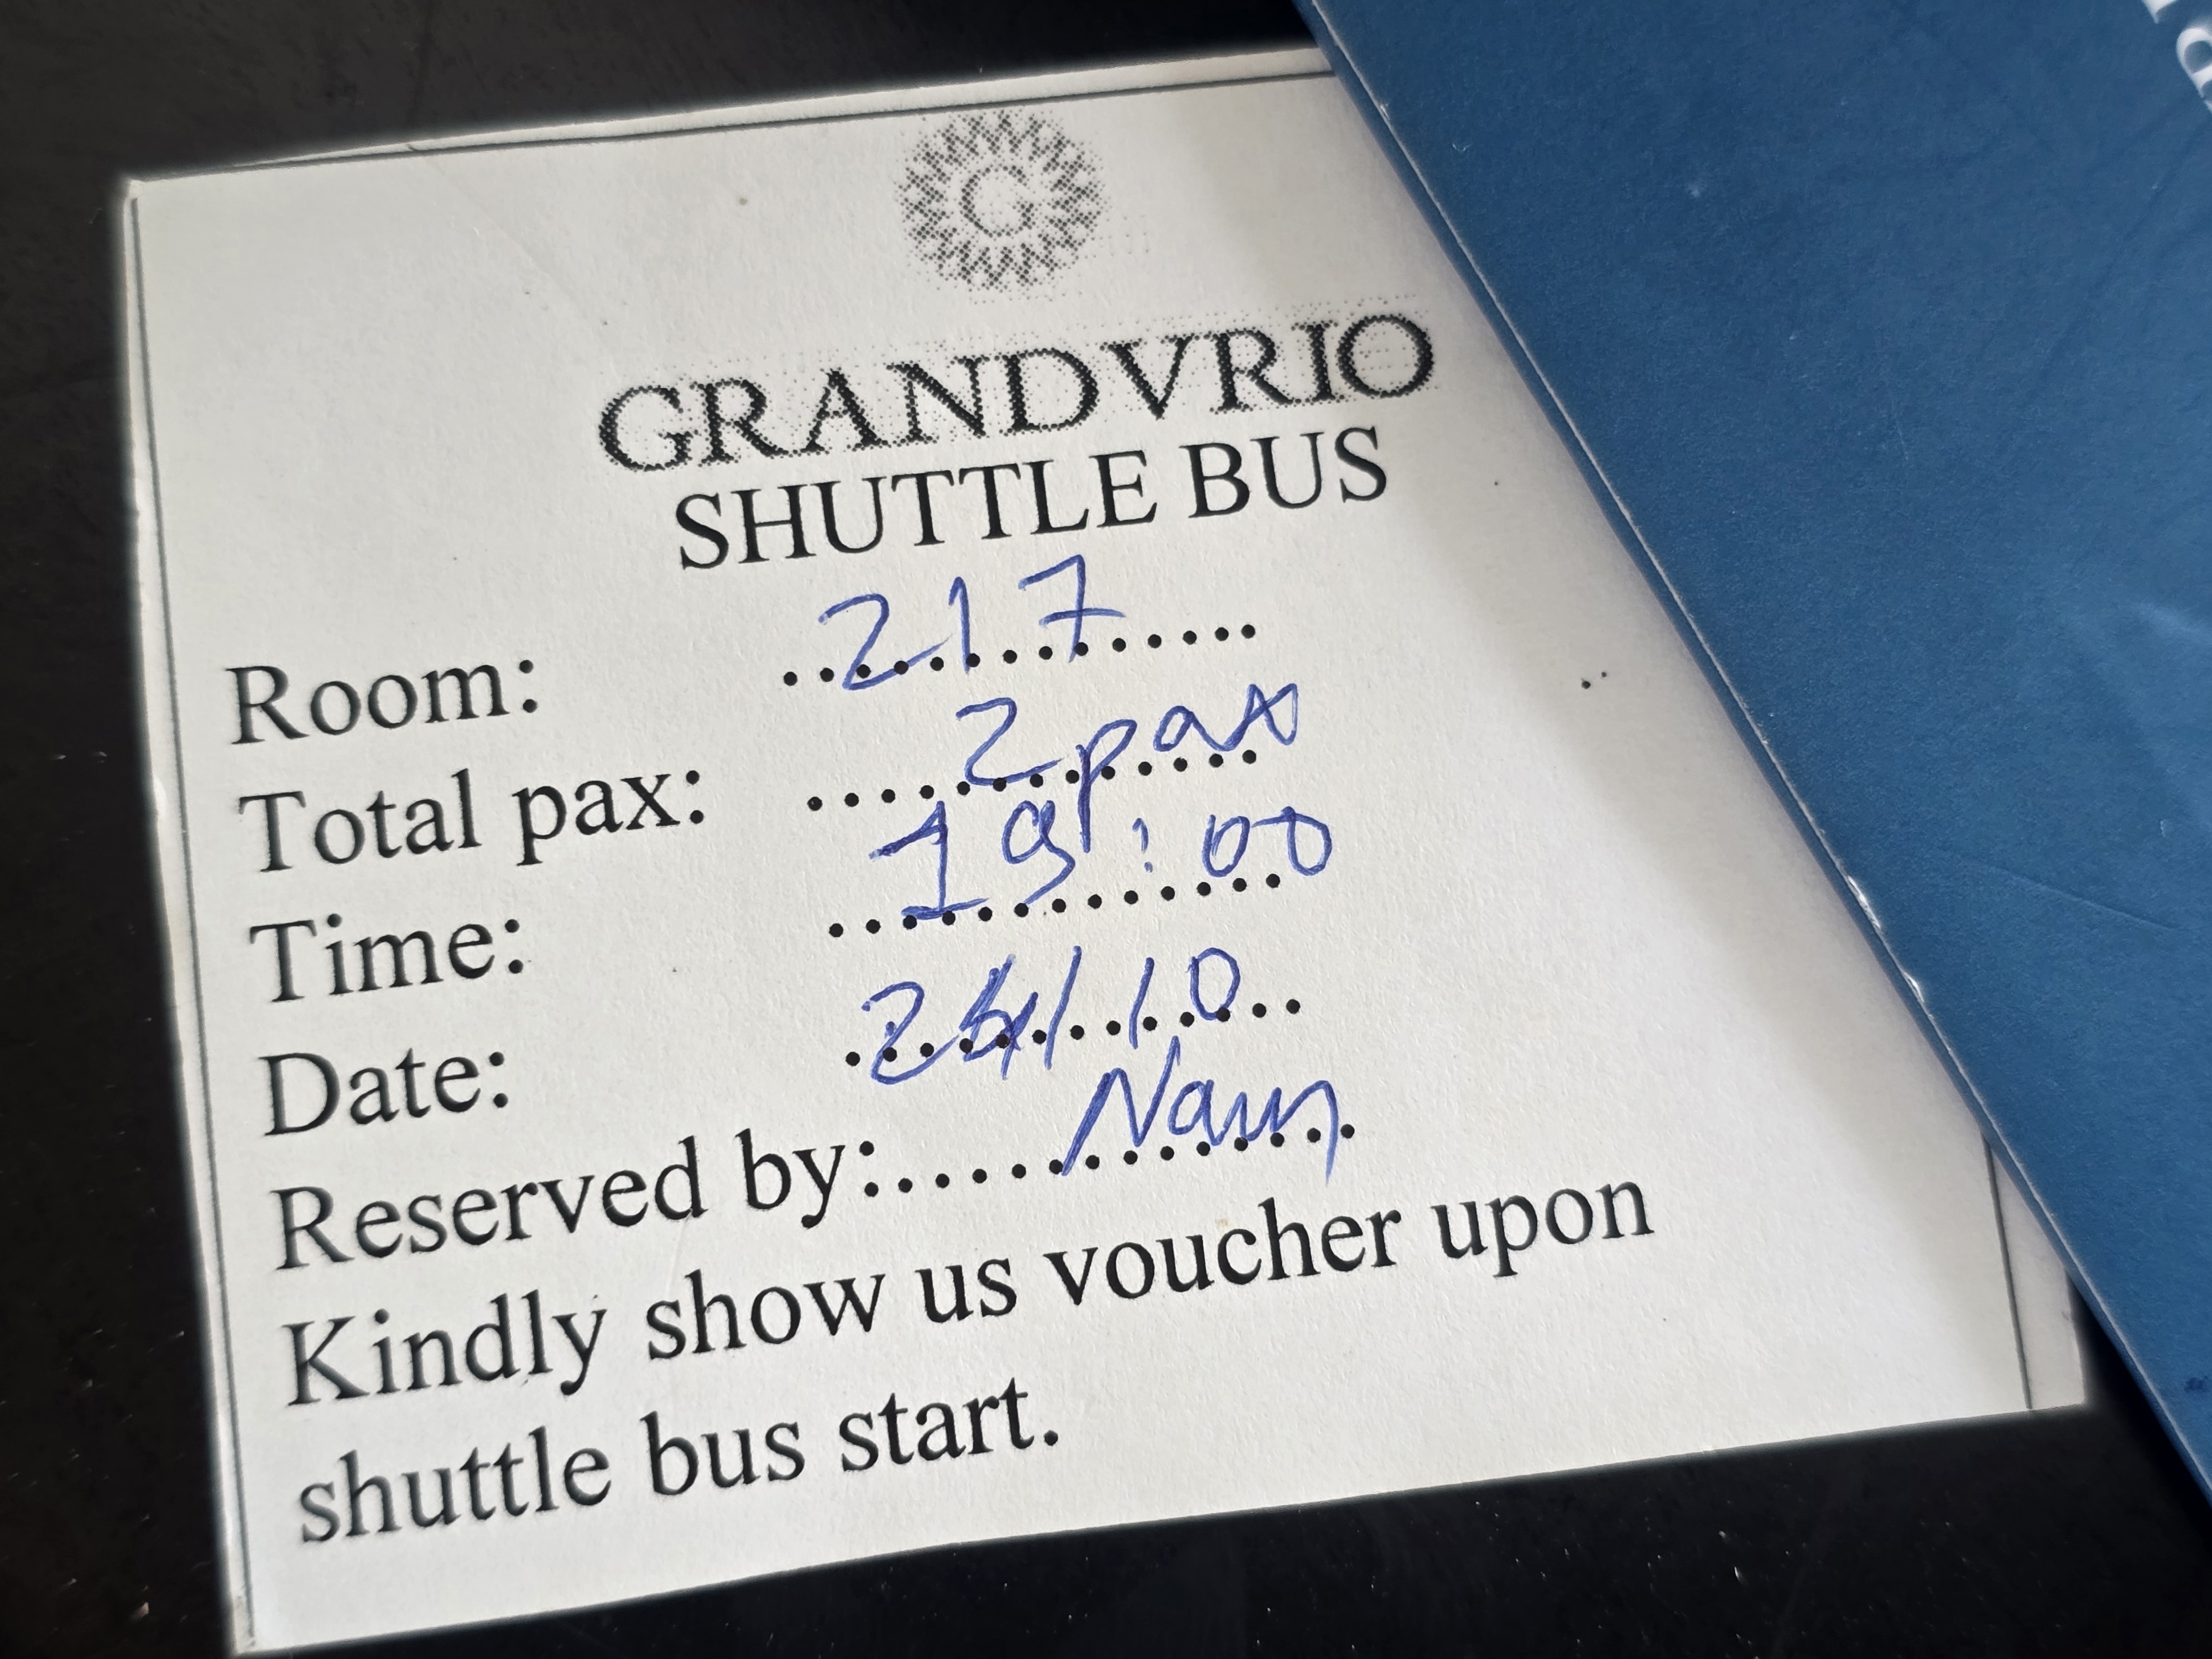 G
GRANDVRIO
SHUTTLE BUS
Room: ..217......
Total pax: ....2 pax....
Time: ..19:00....
Date: ../10..
Reserved by:.....Nam...
Kindly show us voucher upon
shuttle bus start.